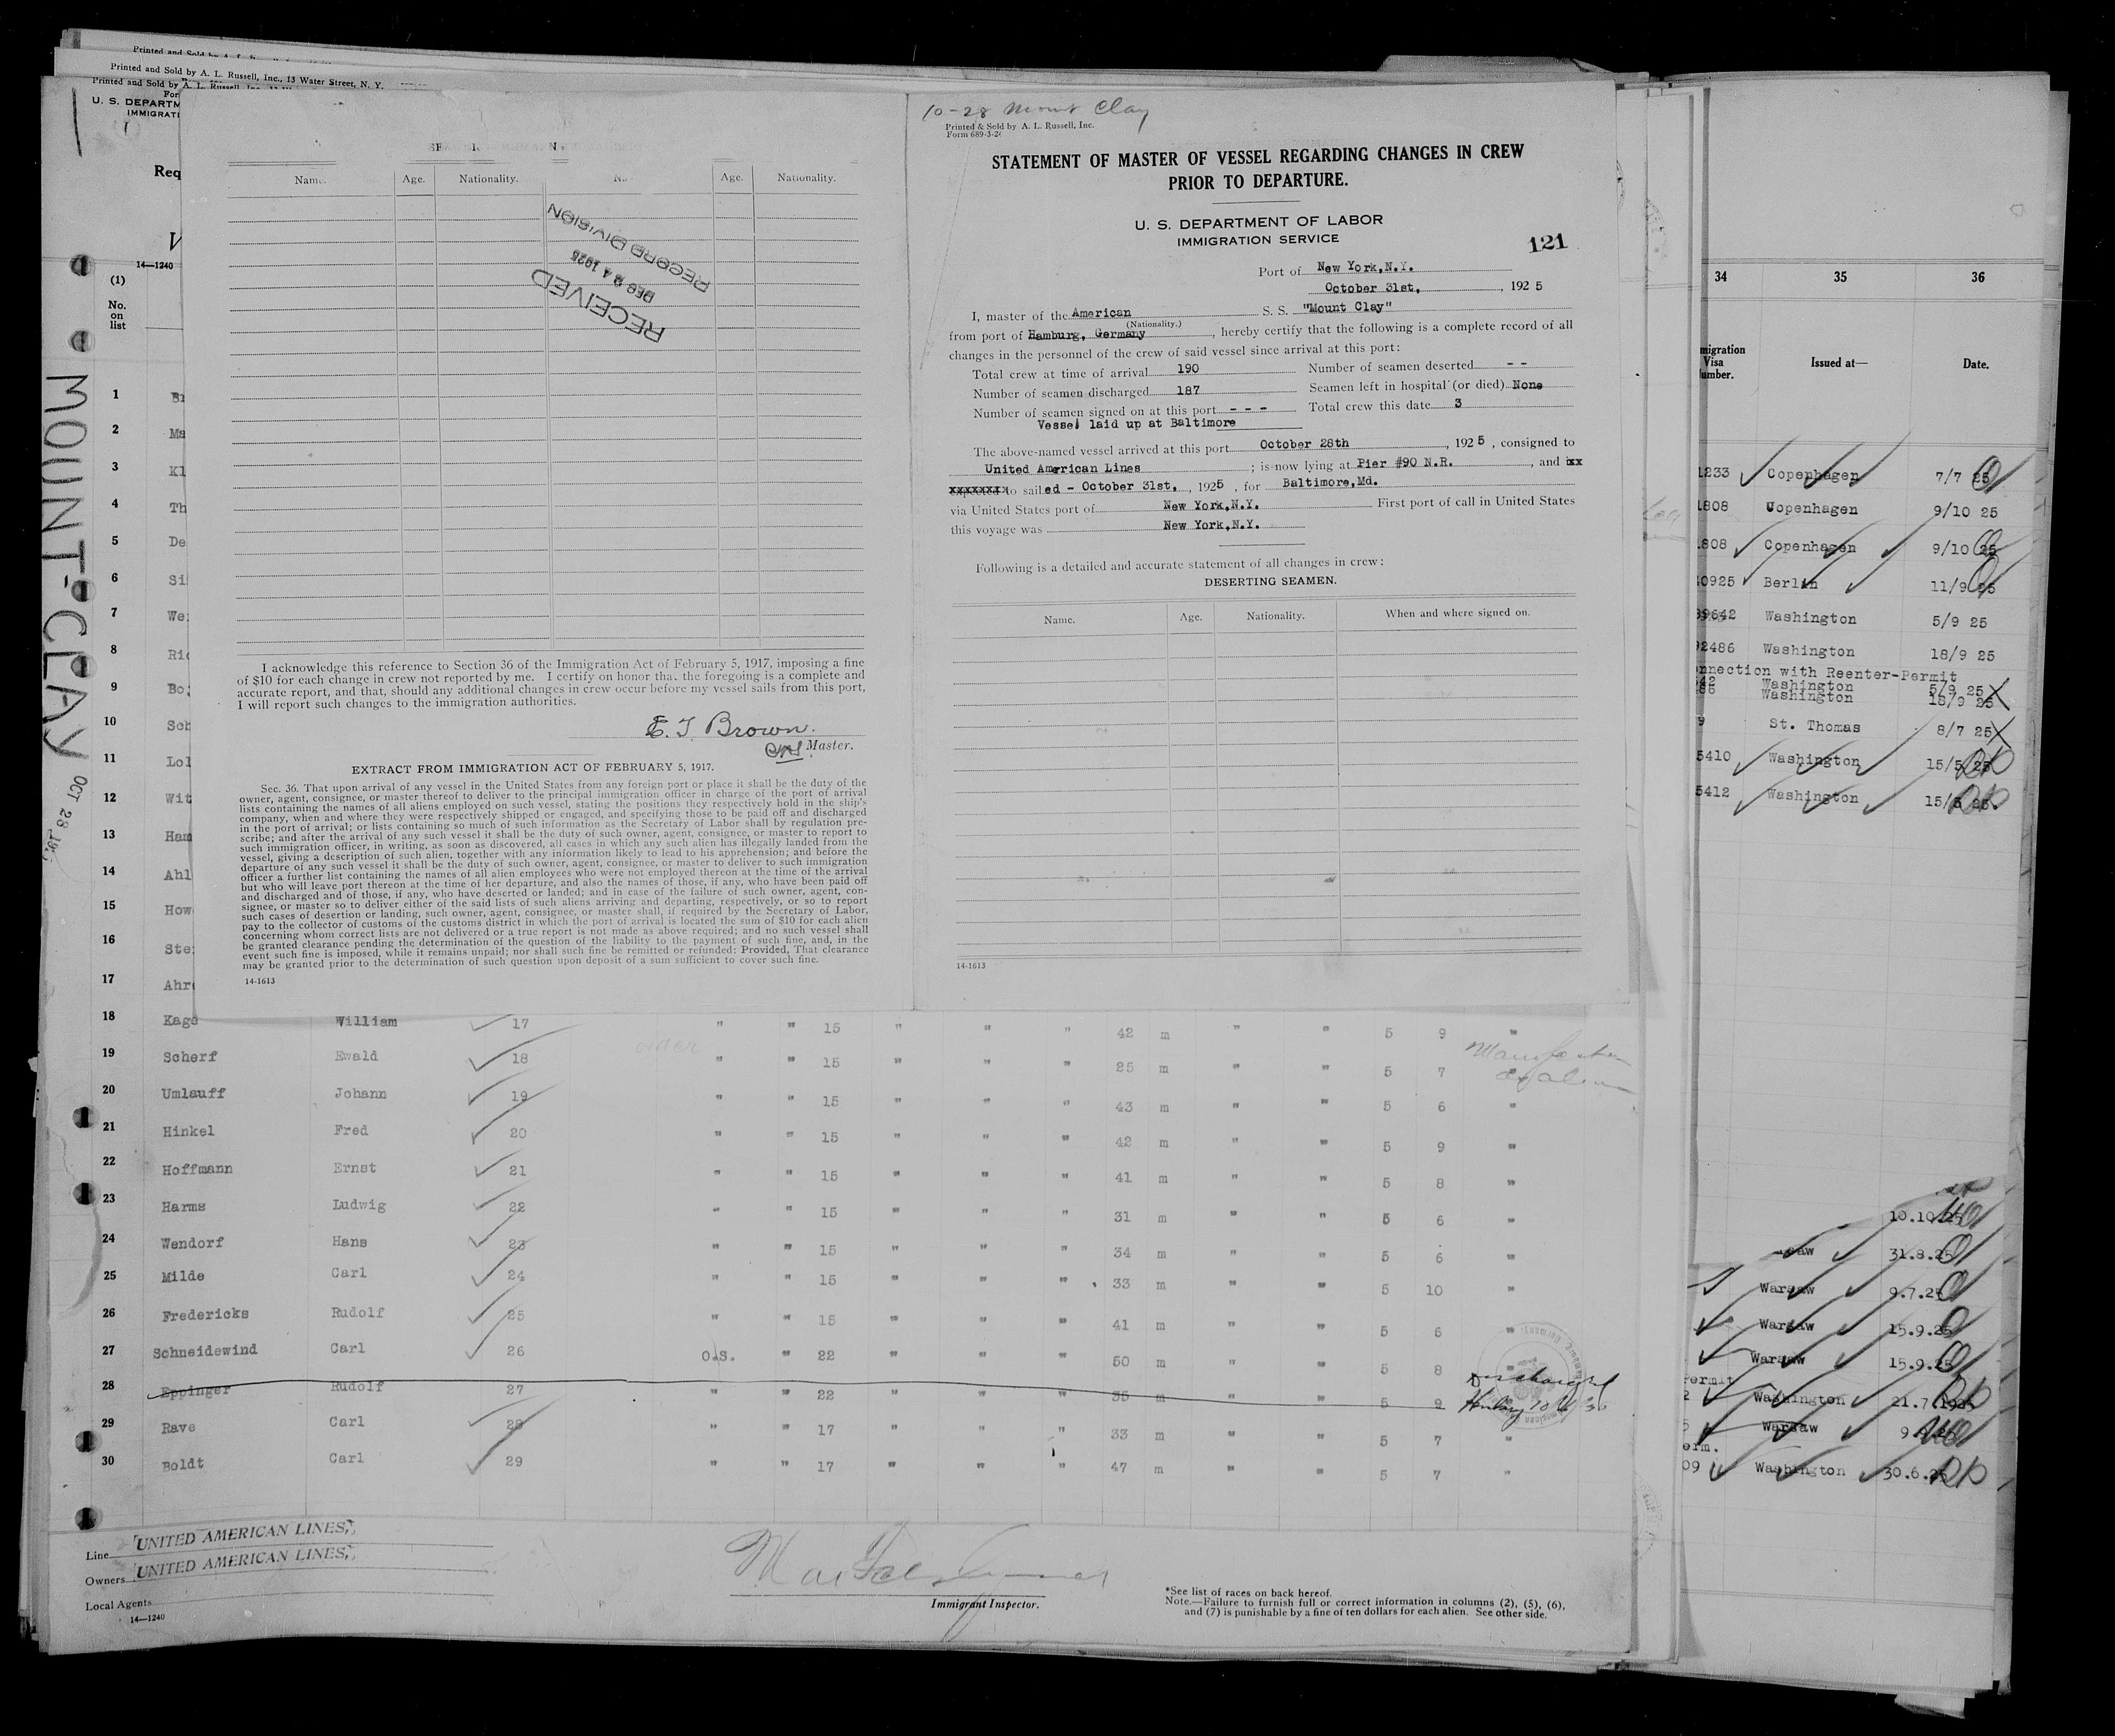 Printed and Sold by A. L. Russell, Inc., 13 Water Street, N. Y.
Printed and Sold by A. L. Russell, Inc.
U. S. DEPARTM
IMMIGRATI
Req
14—1240
(1)
No.
on
list
MOUNT-CLAY
OCT 28
1
2 Ma
3 Kl
4 Th
5 De
6 Si
7 We
8 Ric
9 Bo
10 Sch
11 Lol
12 Wit
13 Ham
14 Ahl
15 How
16 Ste
17 Ahr
Name. Age. Nationality. Age. Nationality.
RECEIVED
DEC 24 1925
RECORD DIVISION
I acknowledge this reference to Section 36 of the Immigration Act of February 5, 1917, imposing a fine
of $10 for each change in crew not reported by me. I certify on honor that the foregoing is a complete and
accurate report, and that, should any additional changes in crew occur before my vessel sails from this port,
I will report such changes to the immigration authorities.
E. T. Brown.
Master.
EXTRACT FROM IMMIGRATION ACT OF FEBRUARY 5, 1917.
Sec. 36. That upon arrival of any vessel in the United States from any foreign port or place it shall be the duty of the
owner, agent, consignee, or master thereof to deliver to the principal immigration officer in charge of the port of arrival
lists containing the names of all aliens employed on such vessel, stating the positions they respectively hold in the ship's
company, when and where they were respectively shipped or engaged, and specifying those to be paid off and discharged
in the port of arrival; or lists containing so much of such information as the Secretary of Labor shall by regulation pre-
scribe; and after the arrival of any such vessel it shall be the duty of such owner, agent, consignee, or master to report to
such immigration officer, in writing, as soon as discovered, all cases in which any such alien has illegally landed from the
vessel, giving a description of such alien, together with any information likely to lead to his apprehension; and before the
departure of any such vessel it shall be the duty of such owner, agent, consignee, or master to deliver to such immigration
officer a further list containing the names of all alien employees who were not employed thereon at the time of the arrival
but who will leave port thereon at the time of her departure, and also the names of those, if any, who have been paid off
and discharged and of those, if any, who have deserted or landed; and in case of the failure of such owner, agent, con-
signee, or master so to deliver either of the said lists of such aliens arriving and departing, respectively, or so to report
such cases of desertion or landing, such owner, agent, consignee, or master shall, if required by the Secretary of Labor,
pay to the collector of customs of the customs district in which the port of arrival is located the sum of $10 for each alien
concerning whom correct lists are not delivered or a true report is not made as above required; and no such vessel shall
be granted clearance pending the determination of the question of the liability to the payment of such fine, and, in the
event such fine is imposed, while it remains unpaid; nor shall such fine be remitted or refunded: Provided, That clearance
may be granted prior to the determination of such question upon deposit of a sum sufficient to cover such fine.
14-1613
10-28 Mount Clay
Printed & Sold by A. L. Russell, Inc.
Form 689-3-2
STATEMENT OF MASTER OF VESSEL REGARDING CHANGES IN CREW
PRIOR TO DEPARTURE.
U. S. DEPARTMENT OF LABOR
IMMIGRATION SERVICE
121
Port of New York,N.Y.
October 31st, , 192 5
I, master of the American S. S. "Mount Clay"
(Nationality.)
from port of Hamburg, Germany, hereby certify that the following is a complete record of all
changes in the personnel of the crew of said vessel since arrival at this port:
Total crew at time of arrival 190 Number of seamen deserted - -
Number of seamen discharged 187 Seamen left in hospital (or died) None
Number of seamen signed on at this port - - - Total crew this date 3
Vessel laid up at Baltimore
The above-named vessel arrived at this port October 28th , 192 5 , consigned to
United American Lines ; is now lying at Pier #90 N.R. , and xx
xxxxxxxx to sailed - October 31st, , 1925 , for Baltimore,Md.
via United States port of New York,N.Y. First port of call in United States
this voyage was New York,N.Y.
Following is a detailed and accurate statement of all changes in crew:
DESERTING SEAMEN.
Name. Age. Nationality. When and where signed on.
14-1613
34 35 36
migration
Visa
umber. Issued at— Date.
1233 Copenhagen 7/7 25
1808 Copenhagen 9/10 25
808 Copenhagen 9/10 25
0925 Berlin 11/9 25
39642 Washington 5/9 25
92486 Washington 18/9 25
nnection with Reenter-Permit
Washington 5/9 25
Washington 18/9 25
9 St. Thomas 8/7 25
5410 Washington 15/5 25
5412 Washington 15/5 25.
10.10.25
31.8.25
Warsaw 9.7.25
Warsaw 15.9.25
Warsaw 15.9.25
ermit
2 Washington 21.7.1925
5 Warsaw
erm.
09 Washington 30.6.25
18 Kage William 17 " " 15 " " " 42 m " " 5 9 "
19 Scherf Ewald 18 " " 15 " " " 25 m " " 5 7
20 Umlauff Johann 19 " " 15 " " " 43 m " " 5 6 "
21 Hinkel Fred 20 " " 15 " " " 42 m " " 5 9 "
22 Hoffmann Ernst 21 " " 15 " " " 41 m " " 5 8 "
23 Harms Ludwig 22 " " 15 " " " 31 m " " 5 6 "
24 Wendorf Hans 23 " " 15 " " " 34 m " " 5 6 "
25 Milde Carl 24 " " 15 " " " 33 m " " 5 10 "
26 Fredericks Rudolf 25 " " 15 " " " 41 m " " 5 6 "
27 Schneidewind Carl 26 O.S. " 22 " " " 50 m " " 5 8
28 Eppinger Rudolf 27 " " 22 " " " 35 m " " 5 9
discharged
29 Rave Carl 28 " " 17 " " " 33 m " " 5 7 "
30 Boldt Carl 29 " " 17 " " " 47 m " " 5 7 "
Line UNITED AMERICAN LINES,
Owners UNITED AMERICAN LINES,
Local Agents
14—1240
Immigrant Inspector.
*See list of races on back hereof.
Note.—Failure to furnish full or correct information in columns (2), (5), (6),
and (7) is punishable by a fine of ten dollars for each alien. See other side.